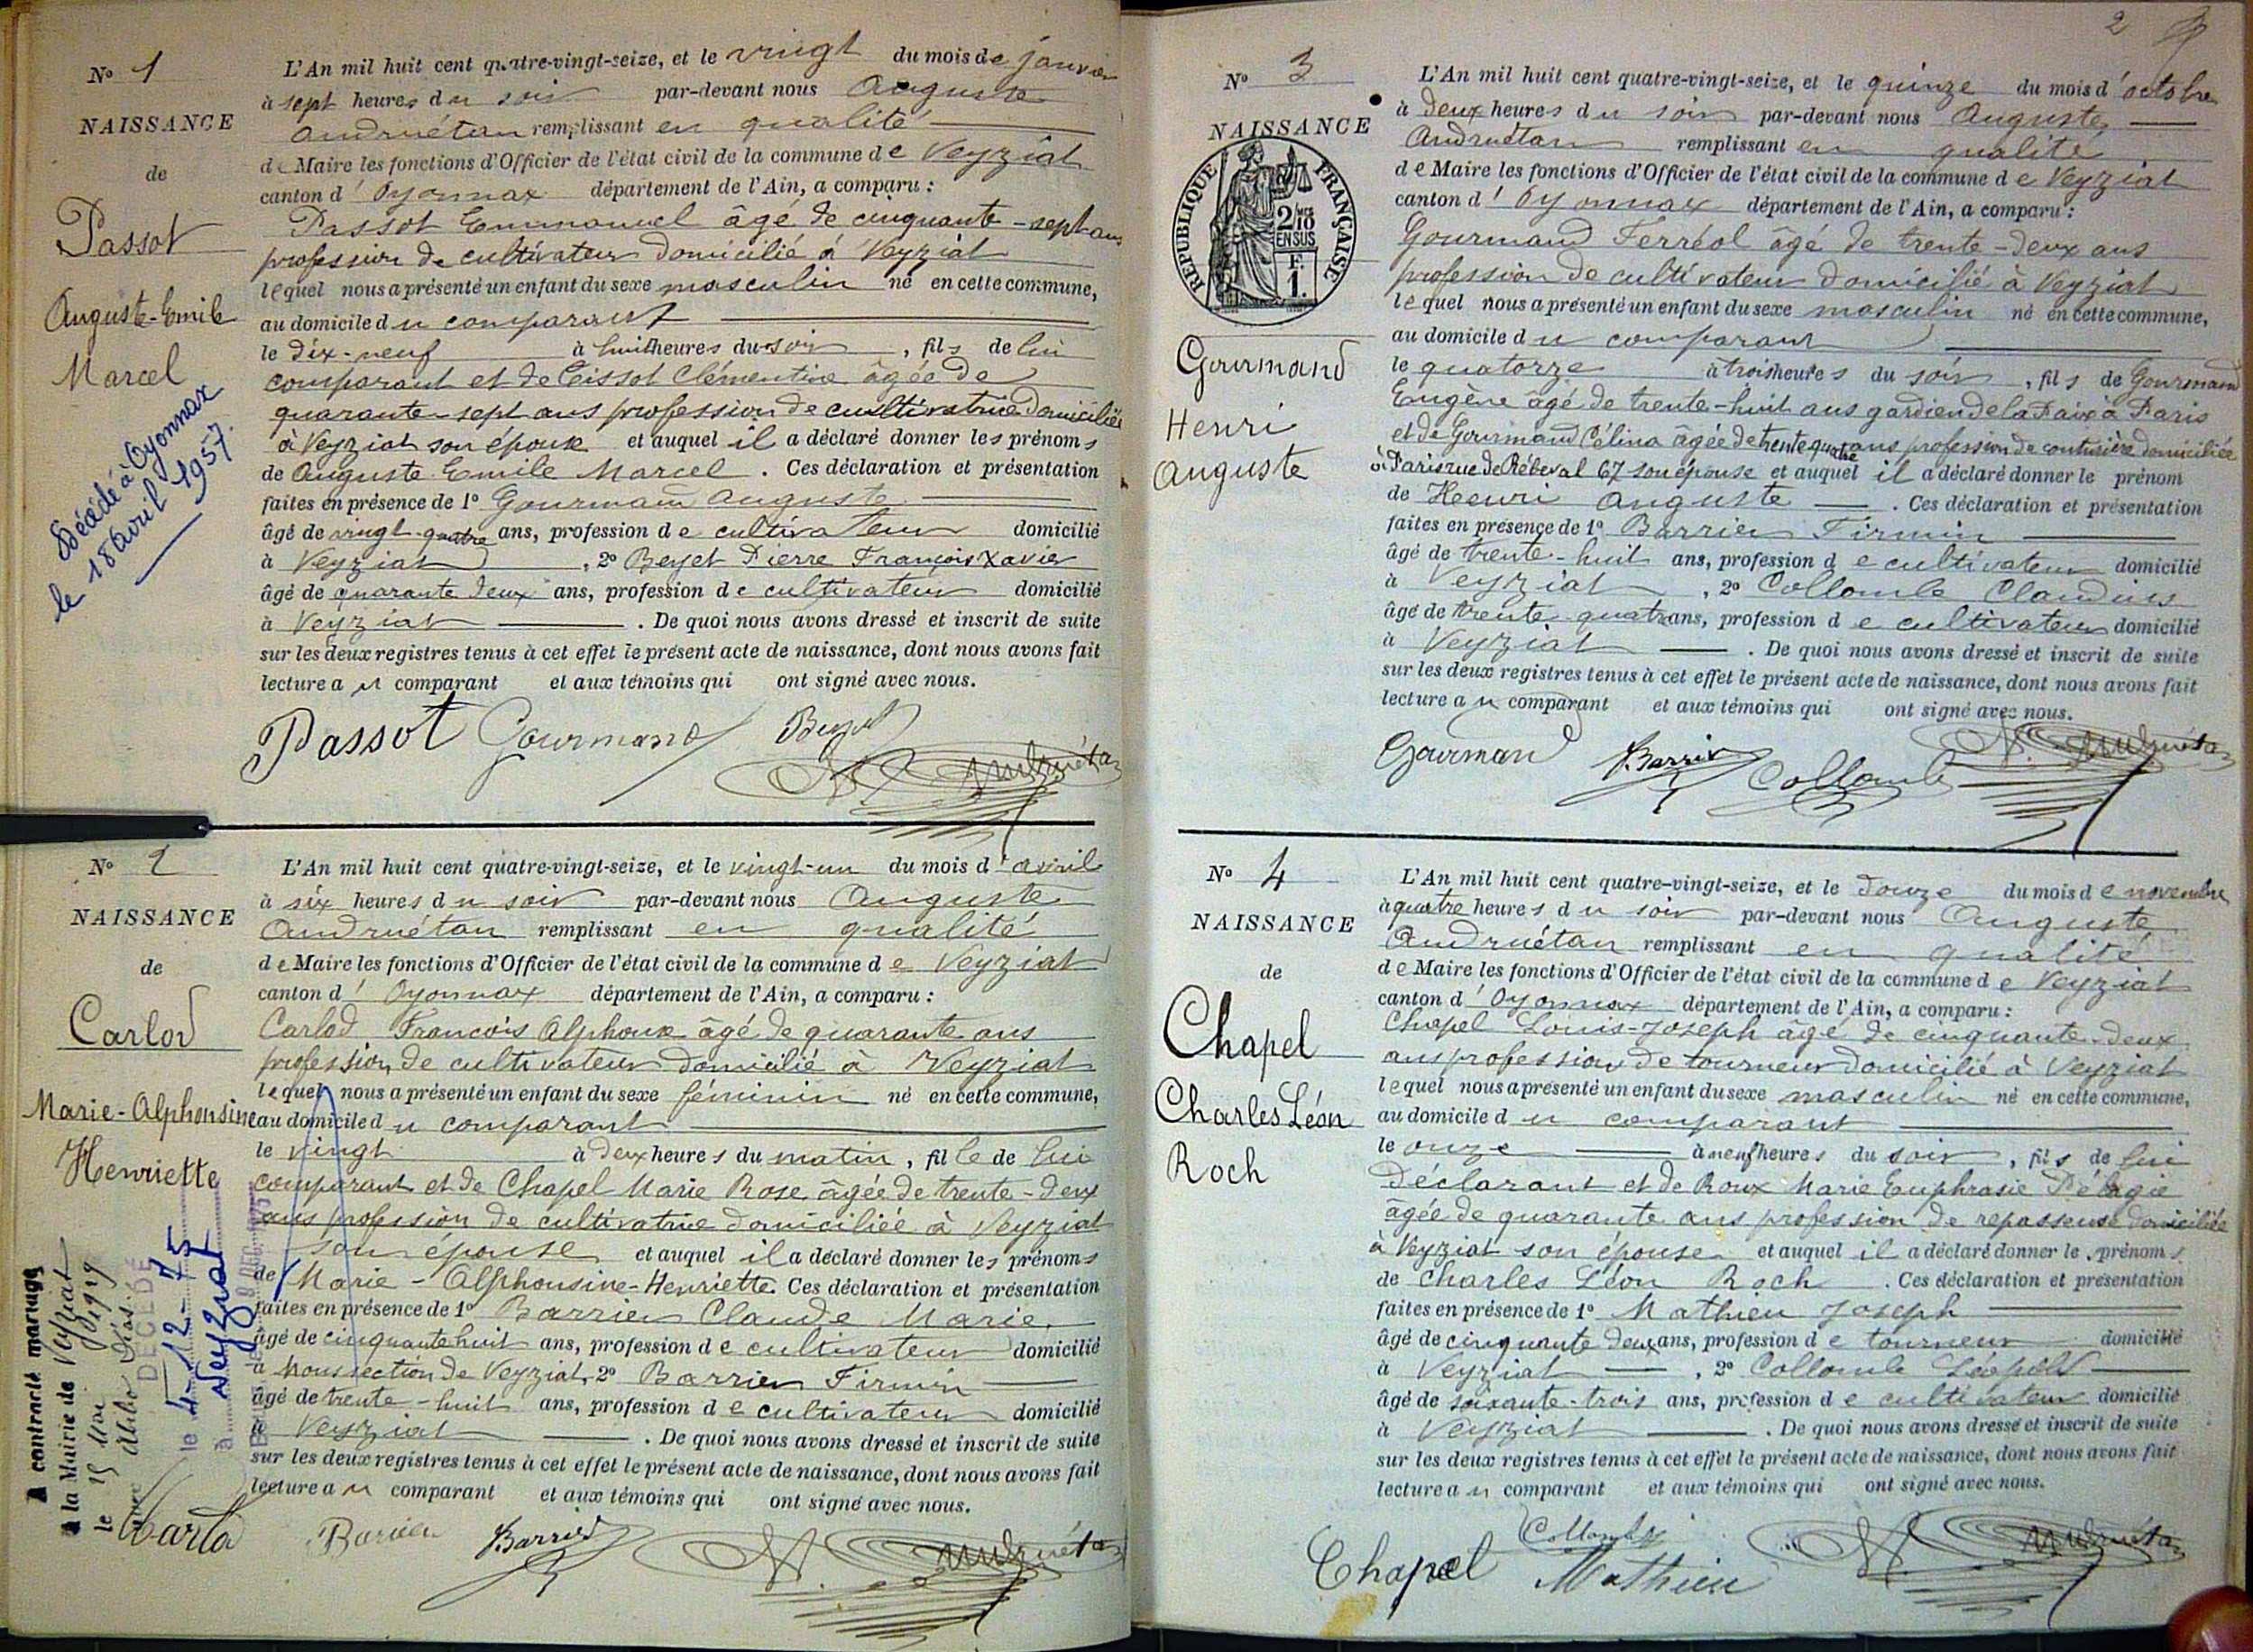 N° 1
NAISSANCE
de
Passot
Auguste-Emile
Marcel
Décédé à Oyonnax
le 18 avril 1957.
L'An mil huit cent quatre-vingt-seize, et le vingt du mois de janvier
à sept heures du soir par-devant nous Auguste
Andruétan remplissant en qualité
de Maire les fonctions d'Officier de l'état civil de la commune de Veyziat
canton d'Oyonnax département de l'Ain, a comparu :
Passot Emmanuel âgé de cinquante-sept ans
profession de cultivateur domicilié à Veyziat
lequel nous a présenté un enfant du sexe masculin né en cette commune,
au domicile du comparant
le dix-neuf à huit heures du soir, fils de lui
comparant et de Ceissot Clémentine âgée de
quarante-sept ans profession de cultivatrice domiciliée
à Veyziat son épouse et auquel il a déclaré donner les prénoms
de Auguste Emile Marcel. Ces déclaration et présentation
faites en présence de 1° Gourmand Auguste
âgé de vingt-quatre ans, profession de cultivateur domicilié
à Veyziat, 2° Beyet Pierre François Xavier
âgé de quarante deux ans, profession de cultivateur domicilié
à Veyziat. De quoi nous avons dressé et inscrit de suite
sur les deux registres tenus à cet effet le présent acte de naissance, dont nous avons fait
lecture au comparant et aux témoins qui ont signé avec nous.
Passot Gourmand Beyet
Andruétan
N° 2
NAISSANCE
de
Carlod
Marie-Alphonsine
Henriette
A contracté mariage
à la Mairie de Veyziat
le 15 mai 1919
avec
DÉCÉDÉ
le 4-12-75
à Veyziat
L'An mil huit cent quatre-vingt-seize, et le vingt-un du mois d'avril
à six heures du soir par-devant nous Auguste
Andruétan remplissant en qualité
de Maire les fonctions d'Officier de l'état civil de la commune de Veyziat
canton d'Oyonnax département de l'Ain, a comparu :
Carlod François Alphonse âgé de quarante ans
profession de cultivateur domicilié à Veyziat
lequel nous a présenté un enfant du sexe féminin né en cette commune,
au domicile du comparant
le vingt à deux heures du matin, fille de lui
comparant et de Chapel Marie Rose âgée de trente-deux
ans profession de cultivatrice domiciliée à Veyziat
son épouse et auquel il a déclaré donner les prénoms
de Marie-Alphonsine-Henriette. Ces déclaration et présentation
faites en présence de 1° Barrier Claude Marie.
âgé de cinquante huit ans, profession de cultivateur domicilié
à Mons section de Veyziat, 2° Barrier Firmin
âgé de trente-huit ans, profession de cultivateur domicilié
à Veyziat. De quoi nous avons dressé et inscrit de suite
sur les deux registres tenus à cet effet le présent acte de naissance, dont nous avons fait
lecture au comparant et aux témoins qui ont signé avec nous.
Carlod Barrier Barrier Andruétan
2
N° 3
NAISSANCE
REPUBLIQUE FRANÇAISE
2/10 EN SUS
F.
1.
Gourmand
Henri
Auguste
L'An mil huit cent quatre-vingt-seize, et le quinze du mois d'octobre
à deux heures du soir par-devant nous Auguste
Andruétan remplissant en qualité
de Maire les fonctions d'Officier de l'état civil de la commune de Veyziat
canton d'Oyonnax département de l'Ain, a comparu :
Gourmand Ferréol âgé de trente-deux ans
profession de cultivateur domicilié à Veyziat
lequel nous a présenté un enfant du sexe masculin né en cette commune,
au domicile du comparant
le quatorze à trois heures du soir, fils de Gourmand
Eugène âgé de trente-huit ans gardien de la Paix à Paris
et de Gourmand Célina âgée de trente quatre ans profession de couturière domiciliée
à Paris rue de Rébeval 67 son épouse et auquel il a déclaré donner le prénom
de Henri Auguste. Ces déclaration et présentation
faites en présence de 1° Barrier Firmin
âgé de trente-huit ans, profession de cultivateur domicilié
à Veyziat, 2° Collombe Claudius
âgé de trente quatre ans, profession de cultivateur domicilié
à Veyziat. De quoi nous avons dressé et inscrit de suite
sur les deux registres tenus à cet effet le présent acte de naissance, dont nous avons fait
lecture au comparant et aux témoins qui ont signé avec nous.
Gourmand Barrier Collombe Andruétan
N° 4
NAISSANCE
de
Chapel
Charles Léon
Roch
L'An mil huit cent quatre-vingt-seize, et le douze du mois de novembre
à quatre heures du soir par-devant nous Auguste
Andruétan remplissant en qualité
de Maire les fonctions d'Officier de l'état civil de la commune de Veyziat
canton d'Oyonnax département de l'Ain, a comparu :
Chapel Louis-Joseph âgé de cinquante-deux
ans profession de tourneur domicilié à Veyziat
lequel nous a présenté un enfant du sexe masculin né en cette commune,
au domicile du comparant
le onze à neuf heures du soir, fils de lui
déclarant et de Roux Marie Euphrasie Pélagie
âgée de quarante ans profession de repasseuse domiciliée
à Veyziat son épouse et auquel il a déclaré donner le prénoms
de Charles Léon Roch. Ces déclaration et présentation
faites en présence de 1° Mathieu Joseph
âgé de cinquante deux ans, profession de tourneur domicilié
à Veyziat, 2° Collombe Léopold
âgé de soixante-trois ans, profession de cultivateur domicilié
à Veyziat. De quoi nous avons dressé et inscrit de suite
sur les deux registres tenus à cet effet le présent acte de naissance, dont nous avons fait
lecture au comparant et aux témoins qui ont signé avec nous.
Chapel Collombe Mathieu Andruétan